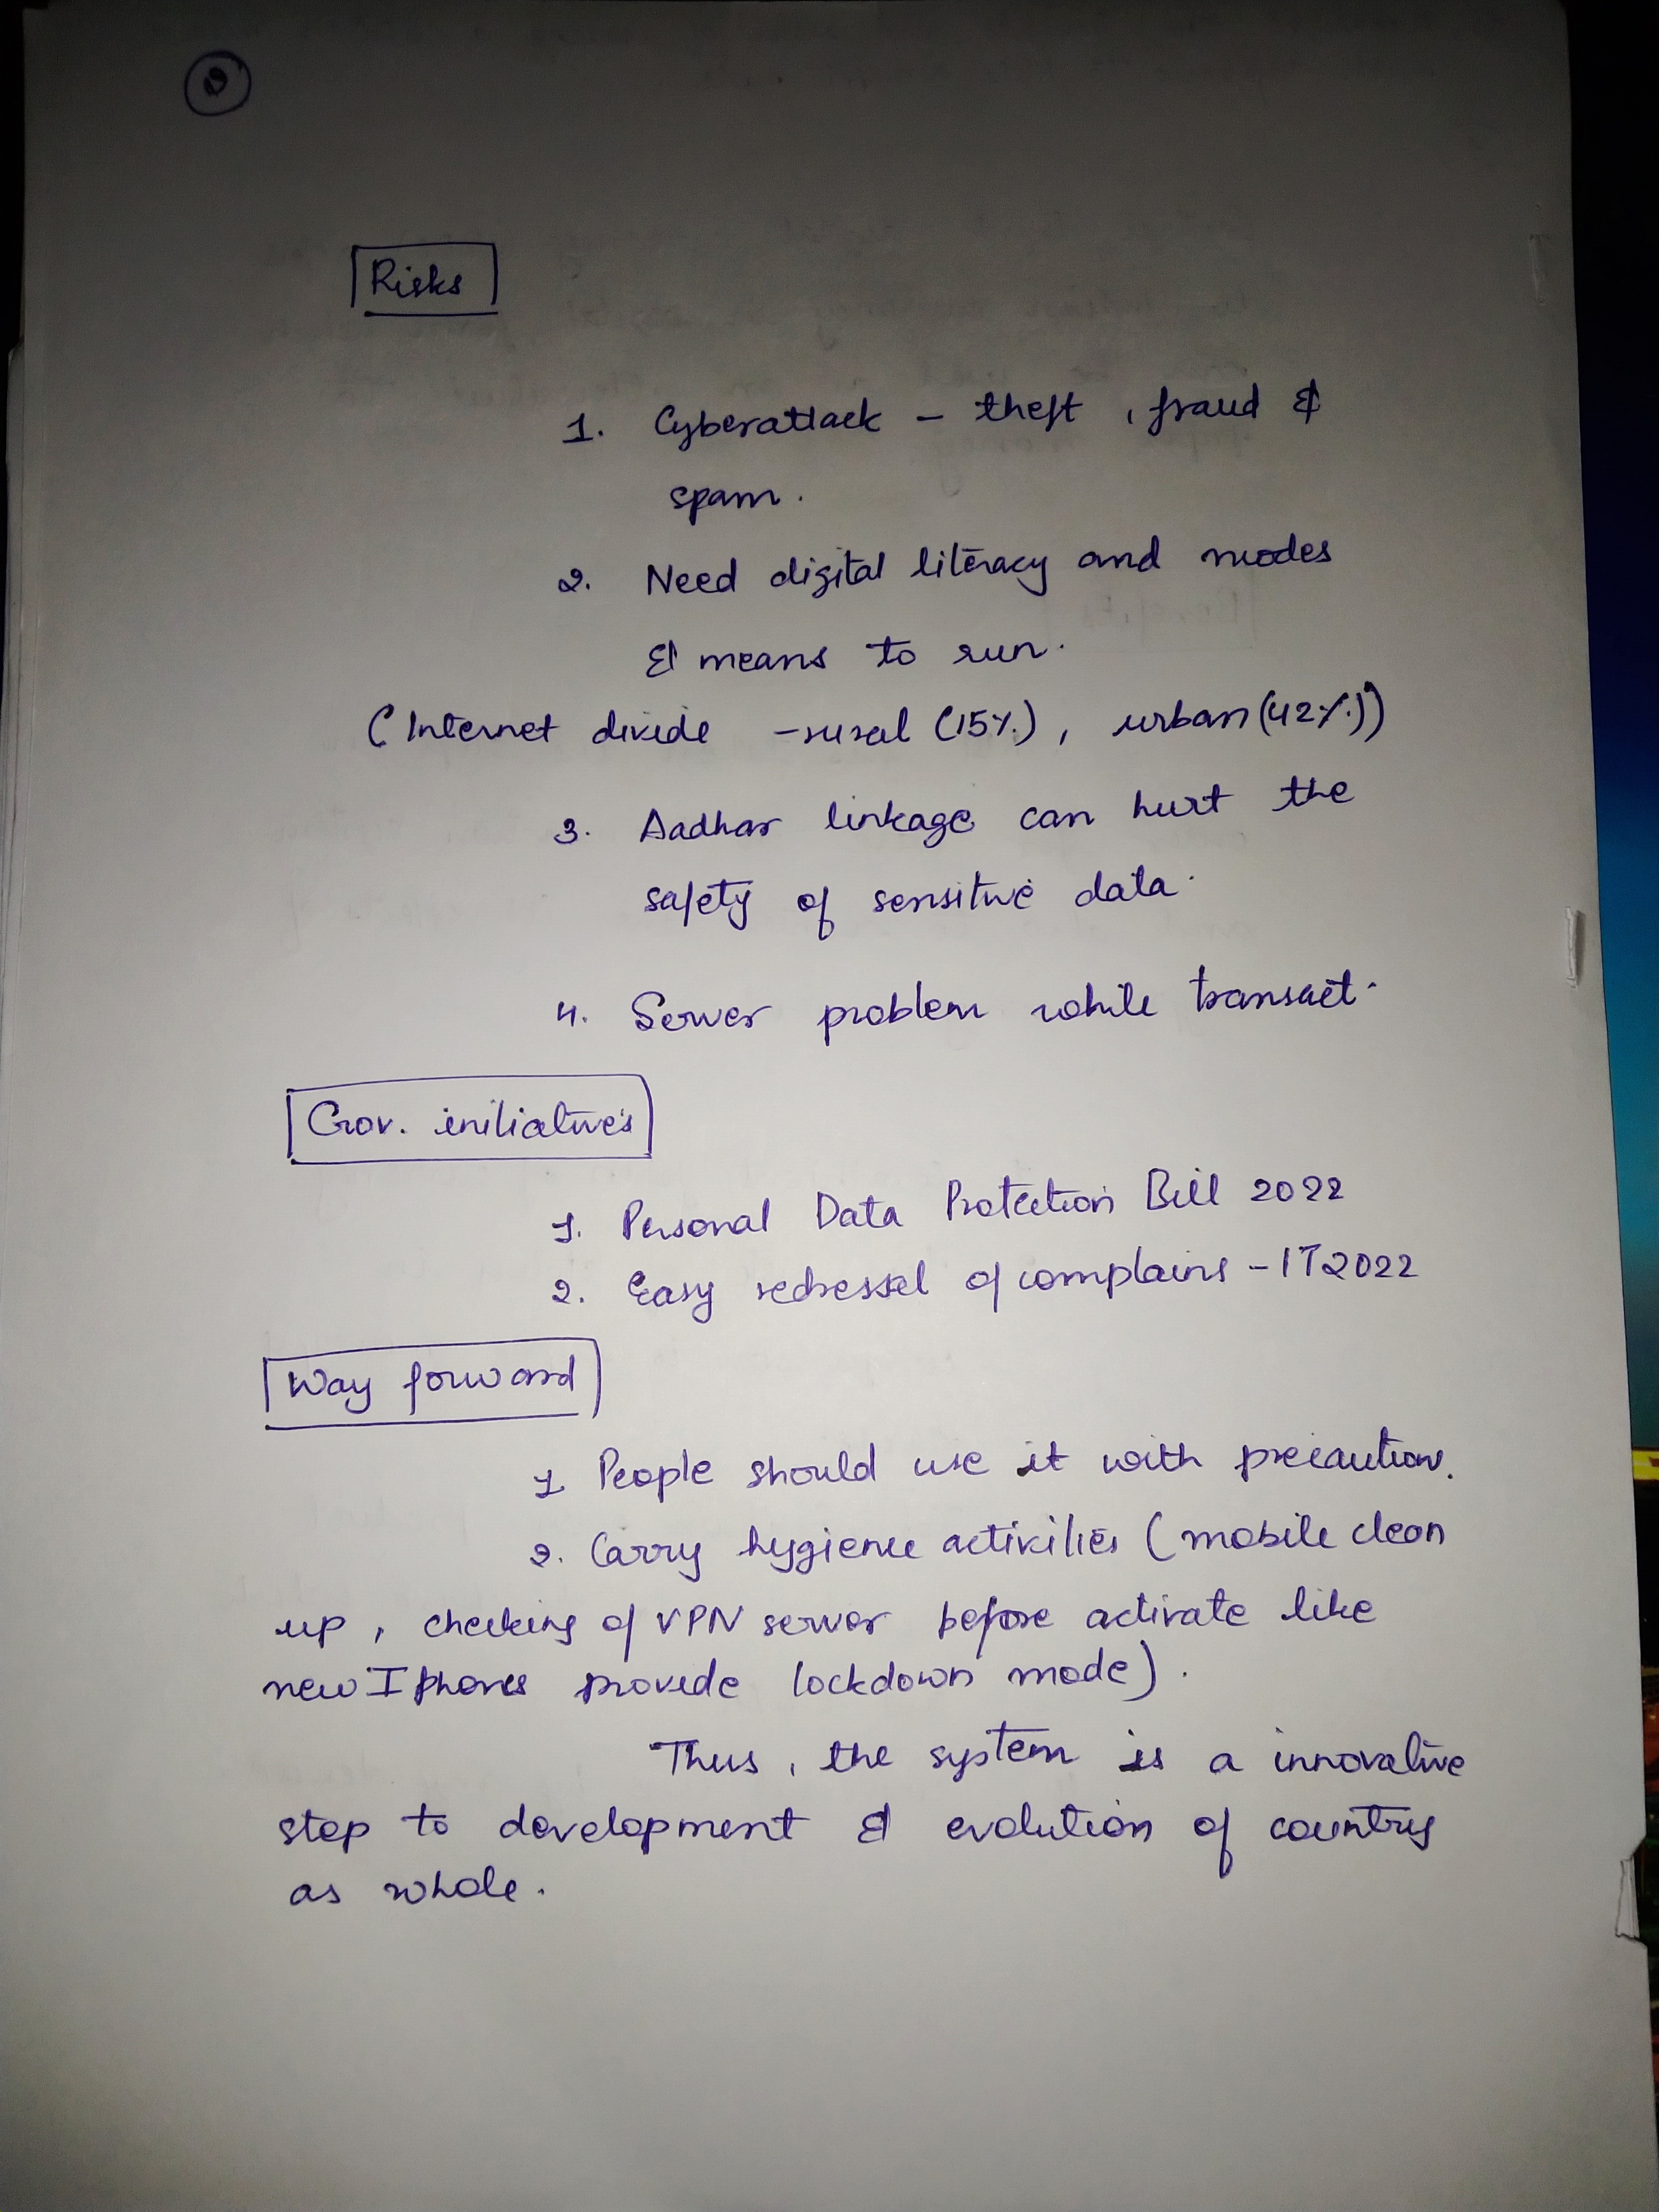 Risks
1. Cyberattack – theft, fraud &
spam.
2. Need digital literacy and modes
& means to run.
(Internet divide – rural (15%), urban (42%))
3. Aadhar linkage can hurt the
safety of sensitive data.
4. Server problem while transact.
Gov. initiatives
1. Personal Data Protection Bill 2022
2. Easy redressel of complains – IT 2022
Way forward
1. People should use it with precaution.
2. Carry hygiene activities (mobile clean
up, checking of VPN server before activate like
new I phones provide lockdown mode).
Thus, the system is a innovative
step to development & evolution of country
as whole.